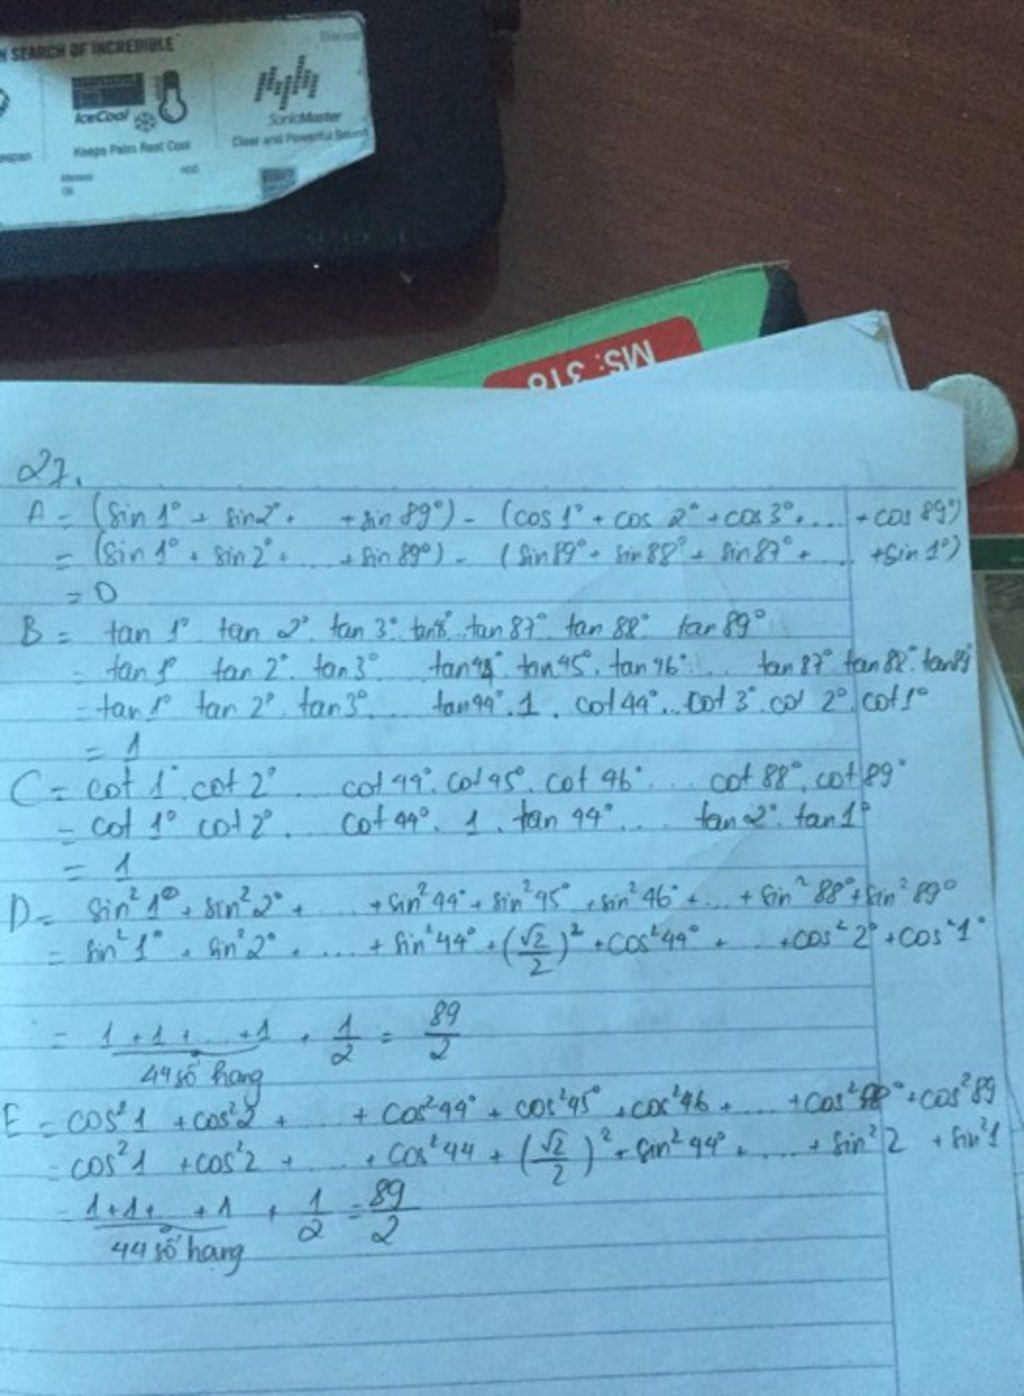 N SEARCH OF INCREDIBLE
IceCool
Keeps Palm Rest Cool
SonicMaster
Clear and Powerful Sound
HDD
MS: 318
27.
A = (sin 1° + sin 2° + + sin 89°) - (cos 1° + cos 2° + cos 3° + ... + cos 89°)
= (sin 1° + sin 2° + ... + sin 89°) - (sin 89° + sin 88° + sin 87° + ... + sin 1°)
= 0
B = tan 1° . tan 2° . tan 3° . tan 87° . tan 88° . tan 89°
= tan 1° tan 2° . tan 3° tan 44° . tan 45° . tan 46° ... tan 87° tan 88° . tan 89°
= tan 1° tan 2° . tan 3° ... tan 44° . 1 . cot 44° ... cot 3° . cot 2° . cot 1°
= 1
C = cot 1° . cot 2° ... cot 44° . cot 45° . cot 46° ... cot 88° . cot 89°
= cot 1° cot 2° ... cot 44° . 1 . tan 44° ... tan 2° . tan 1°
= 1
D = sin²1° + sin²2° + ... + sin²44° + sin²45° + sin²46° + ... + sin²88° + sin²89°
= sin²1° + sin²2° + ... + sin²44° + (√2/2)² + cos²44° + ... + cos²2° + cos²1°
= 1 + 1 + ... + 1 + 1/2 = 89/2
44 số hạng
E = cos²1 + cos²2 + ... + cos²44° + cos²45° + cos²46 + ... + cos²88° + cos²89
= cos²1 + cos²2 + ... + cos²44 + (√2/2)² + sin²44° + ... + sin²2 + sin²1
= 1 + 1 + ... + 1 + 1/2 = 89/2
44 số hạng